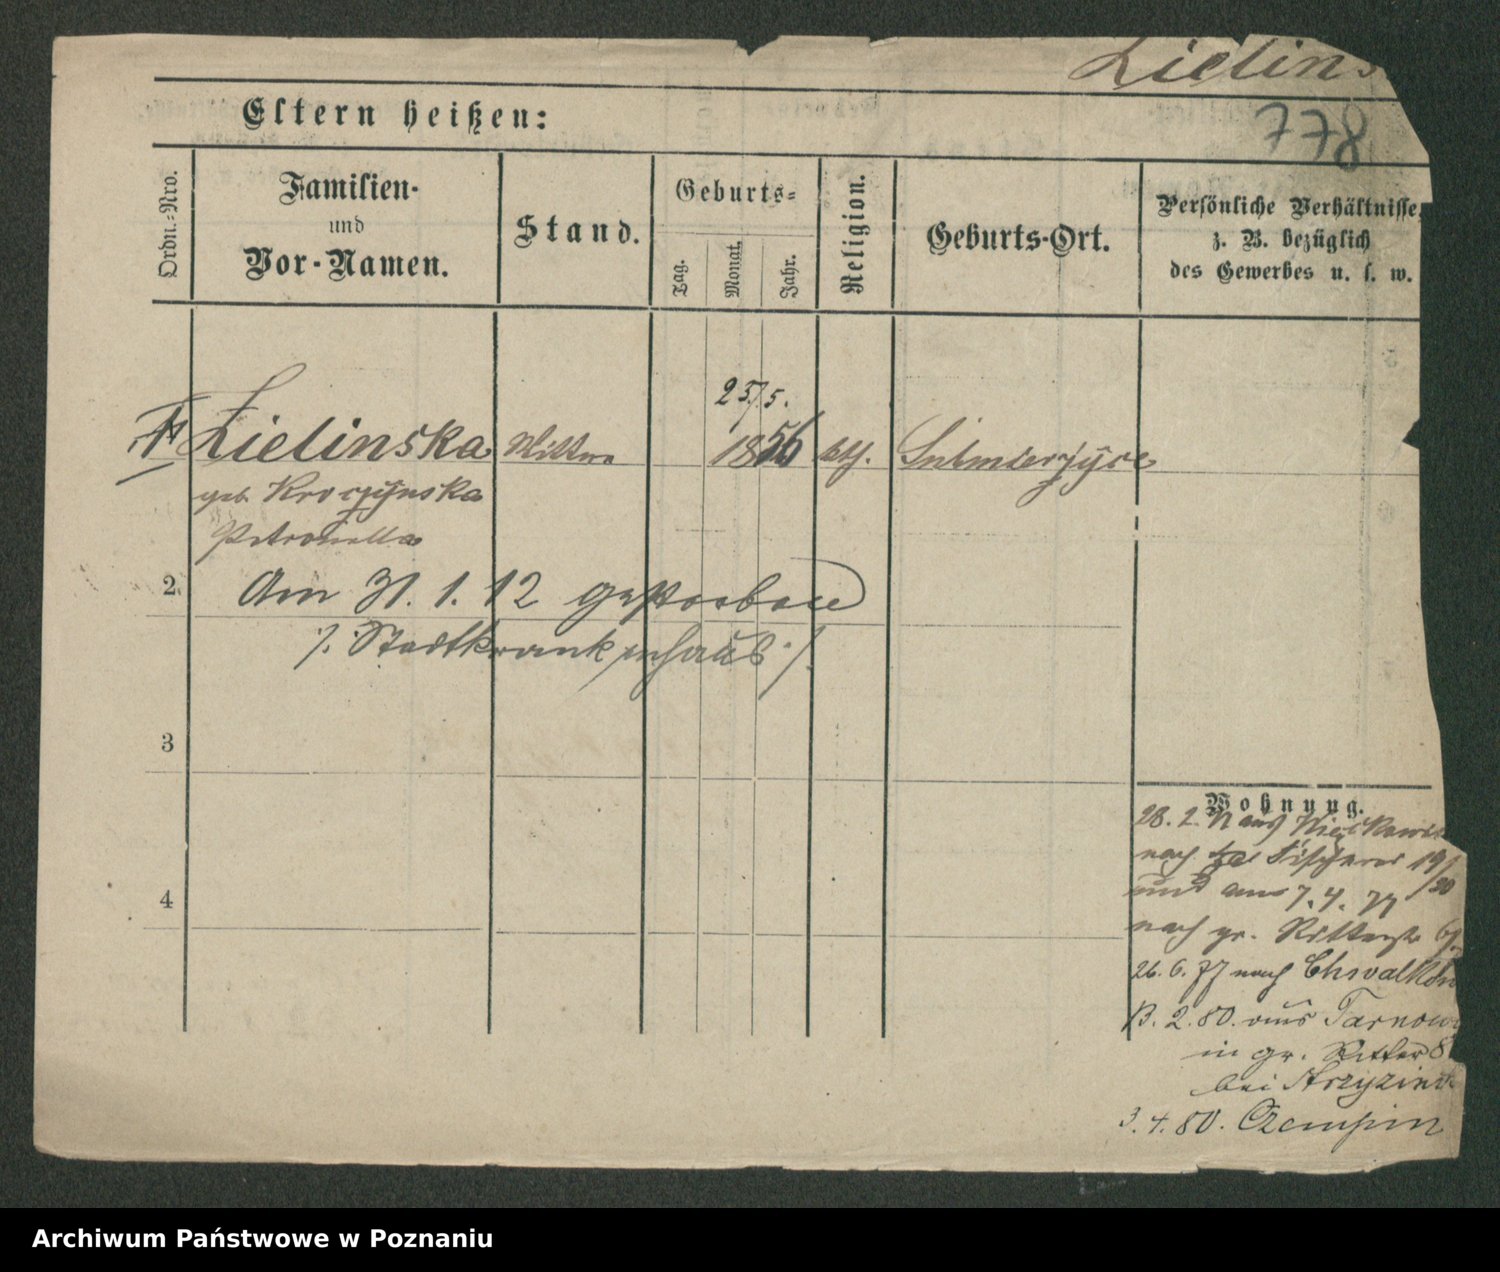 Zielins
778
Eltern heißen:
Ordn.-Nro.
Familien-
und
Vor-Namen.
Stand.
Geburts-
Tag.
Monat.
Jahr.
Religion.
Geburts-Ort.
Persönliche Verhältnisse,
z. B. bezüglich
des Gewerbes u. s. w.
25/5.
Zielinska Wittwe 1856 kth. Sulmierzyce
geb. Kroczynska
Petronella
2. Am 31. 1. 12 gestorben
/: Stadtkrankenhaus :/
3
4
Wohnung.
28. 2. 77 aus
nach Fischerei 19/20
und am 7. 4. 77
nach gr. Ritterstr
26. 6. 77 nach
13. 2. 80. aus Tarnow
in gr. Ritter 8
bei
3. 4. 80. Czempin
Archiwum Państwowe w Poznaniu